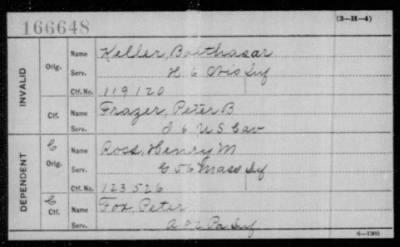 166648
(3-H-4)
INVALID
Orig.
Name Keller, Balthasar
Serv. H 6 Wis Inf
Ctf. No. 119120
Ctf.
Name Frazer, Peter B
Serv. I 6 U S Cav
DEPENDENT
C
Orig.
Name Ross, Henry M
Serv. G 56 Mass Inf
Ctf. No. 123526
C
Ctf.
Name Fox, Peter
Serv. Pa Inf